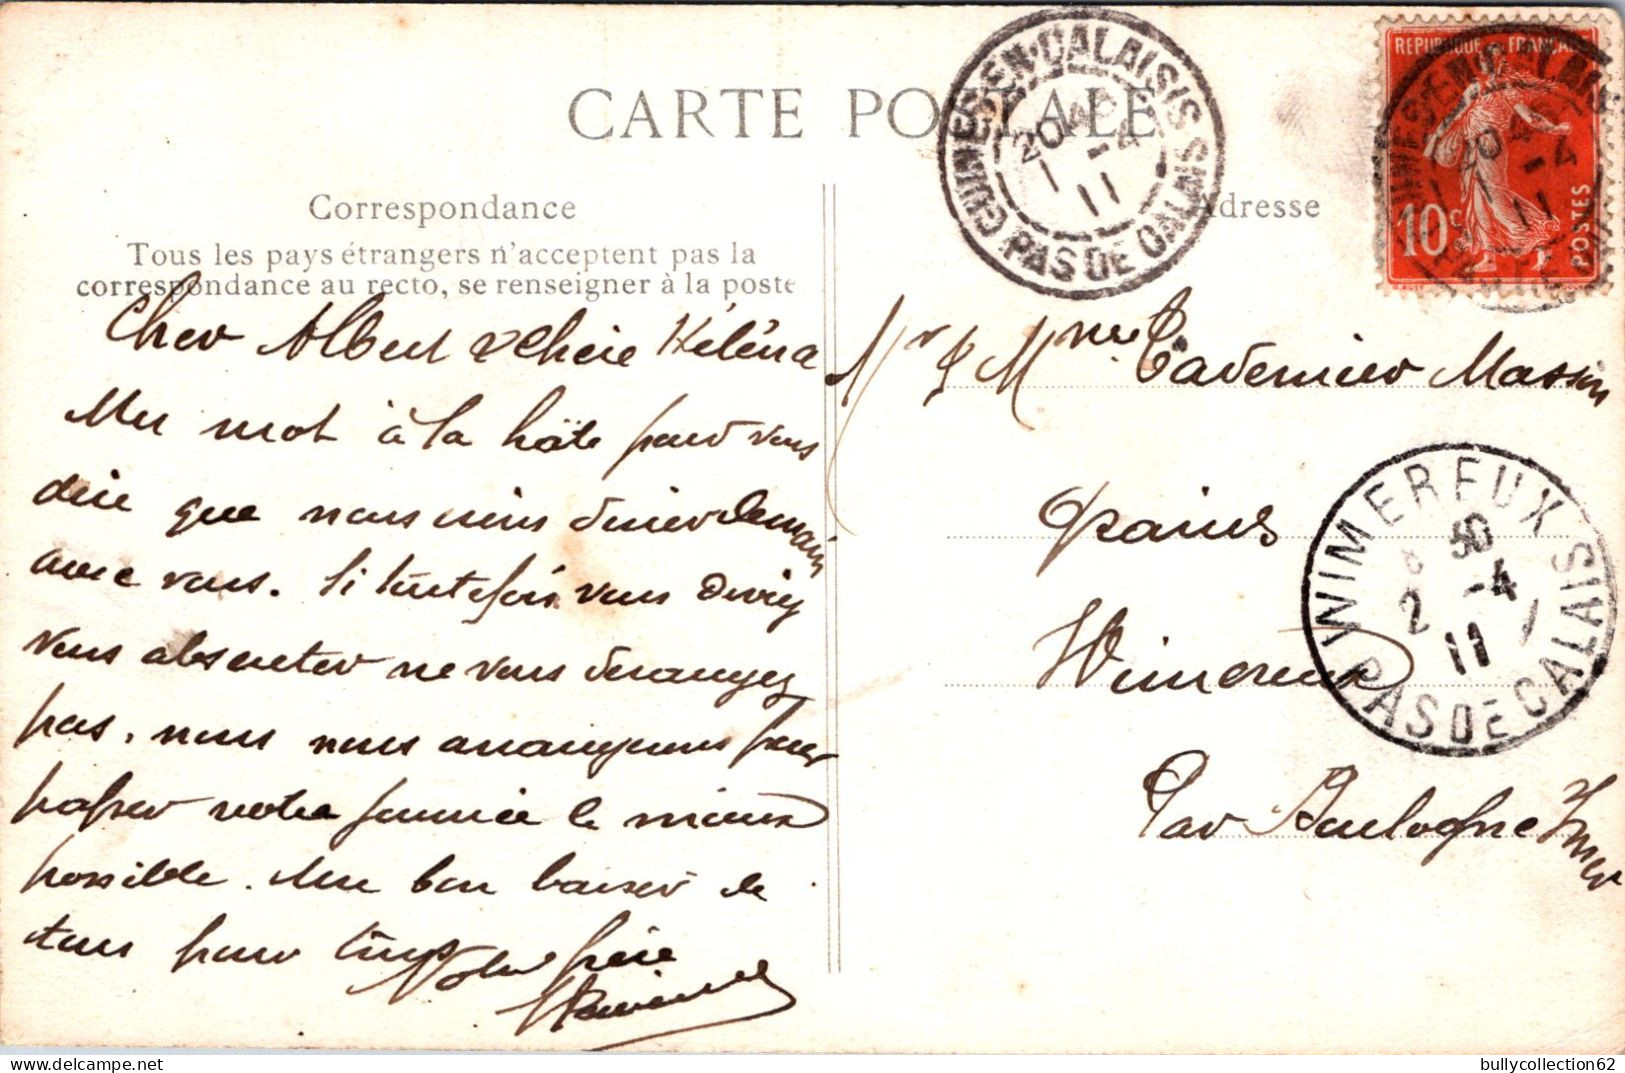 CARTE POSTALE
Correspondance
Tous les pays étrangers n'acceptent pas la
correspondance au recto, se renseigner à la poste
Cher Albert & Chère Héléna
Un mot à la hâte pour vous
dire que nous irons diner demain
avec vous. Si toutefois vous deviez
vous absenter ne vous derangez
pas, nous nous arrangerons pour
passer notre journée le mieux
possible. Un bon baiser de
tous pour tous Votre frère
Adresse
Mr & Mme Tavernier Massin
Grains
Wimereux
Par Boulogne s/mer
GUINES-EN-CALAIS
20
1 -4
11
PAS DE CALAIS
REPUBLIQUE FRANÇAISE
10c
POSTES
WIMEREUX
8 30
2 -4
11
PAS DE CALAIS
bullycollection62